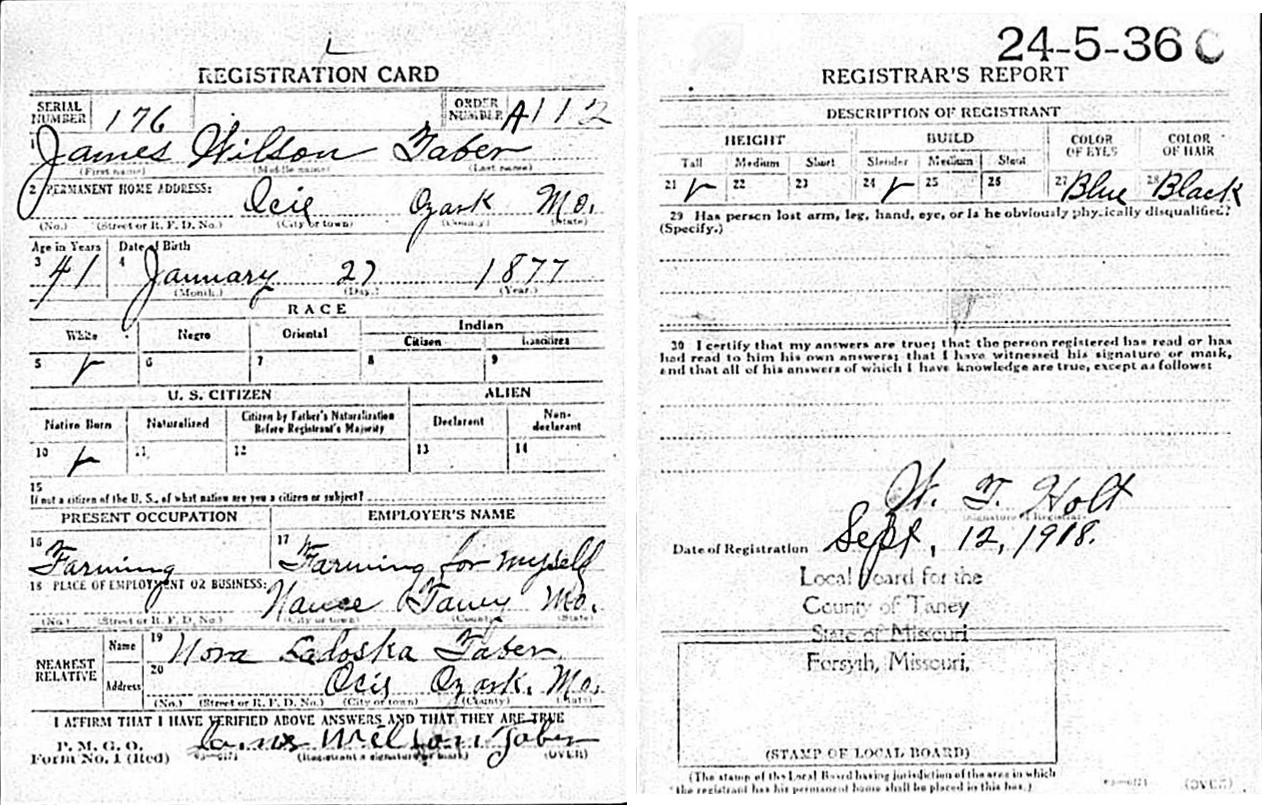 REGISTRATION CARD
SERIAL NUMBER 176 ORDER NUMBER A112
1 James Wilson Taber
(First name) (Middle name) (Last name)
2 PERMANENT HOME ADDRESS: Ocie Ozark Mo.
(No.) (Street or R. F. D. No.) (City or town) (County) (State)
Age in Years Date of Birth
3 41 4 January 27 1877
(Month.) (Day.) (Year.)
RACE
White Negro Oriental Indian
Citizen
5 6 7 8 9
U. S. CITIZEN ALIEN
Native Born Naturalized Citizen by Father's Naturalization Before Registrant's Majority Declarant Non-declarant
10 11 12 13 14
15
If not a citizen of the U. S., of what nation are you a citizen or subject?
PRESENT OCCUPATION EMPLOYER'S NAME
16 Farming 17 Farming for myself
18 PLACE OF EMPLOYMENT OR BUSINESS: Nance Taney Mo.
(No.) (Street or R. F. D. No.) (City or town) (County) (State)
NEAREST RELATIVE Name 19 Nora Taber
Address 20 Ocie Ozark, Mo.
(No.) (Street or R. F. D. No.) (City or town) (County) (State)
I AFFIRM THAT I HAVE VERIFIED ABOVE ANSWERS AND THAT THEY ARE TRUE
P. M. G. O.
Form No. 1 (Red) James Wilson Taber
(Registrant's signature or mark) (OVER)
24-5-36 C
REGISTRAR'S REPORT
DESCRIPTION OF REGISTRANT
HEIGHT BUILD COLOR OF EYES COLOR OF HAIR
Tall Medium Short Slender Medium Stout
21 22 23 24 25 26 27 Blue 28 Black
29 Has person lost arm, leg, hand, eye, or is he obviously physically disqualified?
(Specify.)
30 I certify that my answers are true; that the person registered has read or has
had read to him his own answers; that I have witnessed his signature or mark,
and that all of his answers of which I have knowledge are true, except as follows:
W. T. Holt
(Signature of Registrar)
Date of Registration Sept. 12, 1918.
Local Board for the
County of Taney
State of Missouri
Forsyth, Missouri.
(STAMP OF LOCAL BOARD)
(The stamp of the Local Board having jurisdiction of the area in which
the registrant has his permanent home shall be placed in this box.)
(OVER)